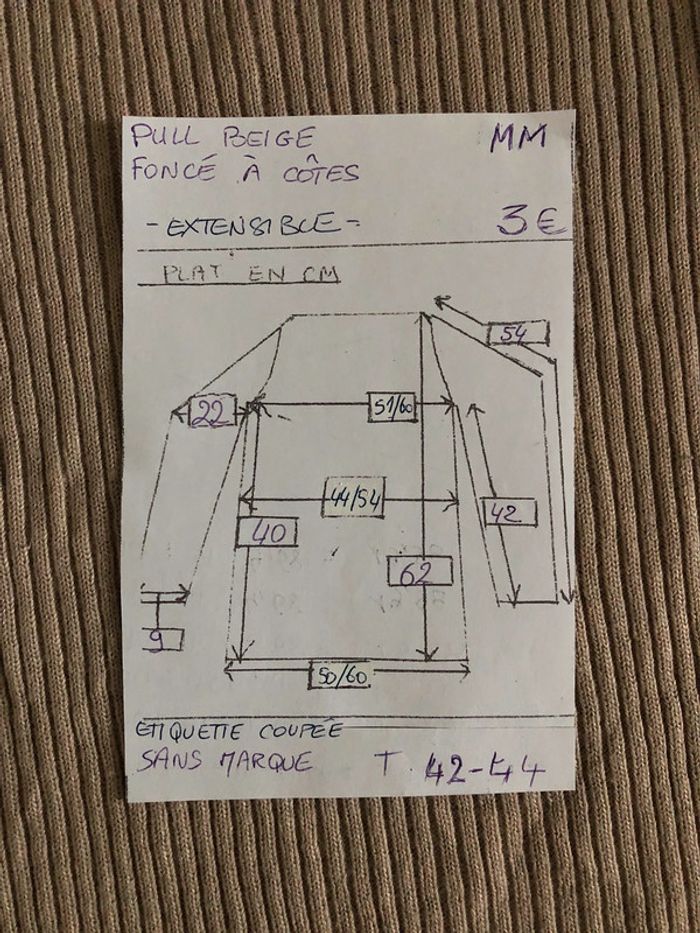 PULL BEIGE MM
FONCÉ À CÔTES
- EXTENSIBLE - 3€
PLAT EN CM
54
22 51/60
44/54 42
40
62
9
50/60
ETIQUETTE COUPÉE
SANS MARQUE T. 42-44